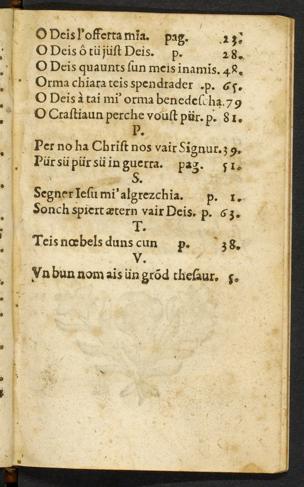 O Deis l'offerta mĩa. pag. 23.
O Deis ô tü jüst Deis. p. 28.
O Deis quaunts sun meis inamis. 48.
Orma chiara teis spendrader .p. 65.
O Deis à tai mi' orma benedescha. 79
O Crastiaun perche voust pür. p. 81.
P.
Per no ha Christ nos vair Signur. 39.
Pür sü pür sü in guerra. pag. 51.
S.
Segner Iesu mi' algrezchia. p. 1.
Sonch spiert ætern vair Deis. p. 63.
T.
Teis nœbels duns cun p. 38.
V.
Vn bun nom ais ün grõd thesaur. 5.